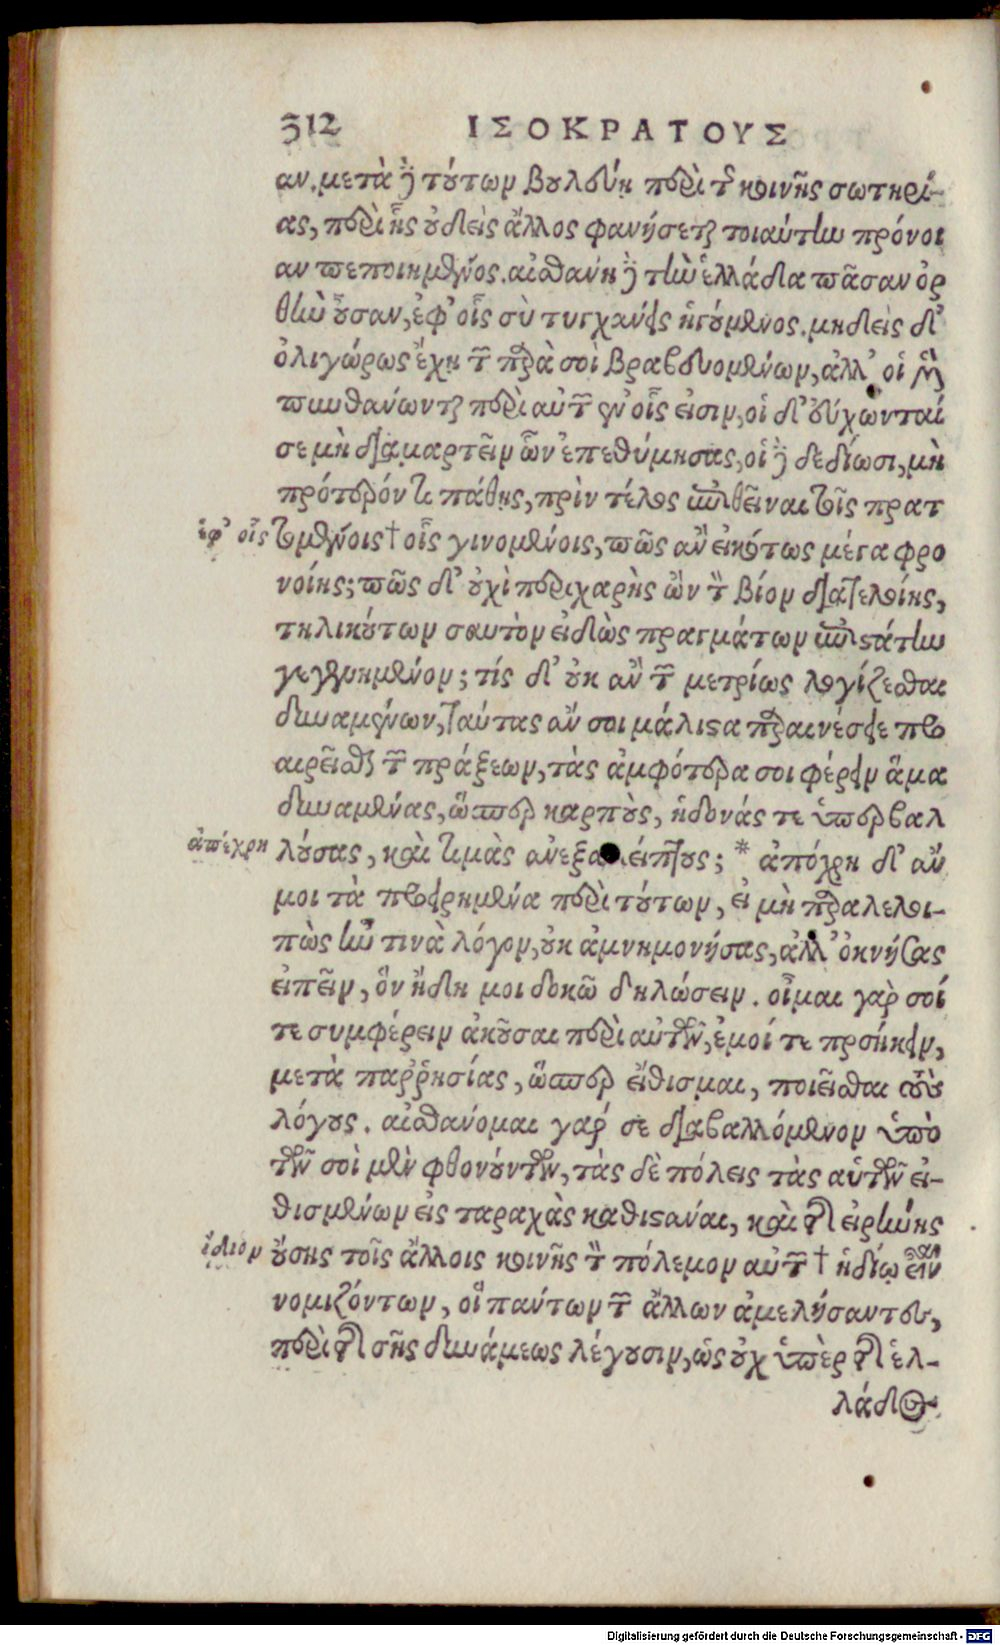 312 ΙΣΟΚΡΑΤΟΥΣ
αν. μετὰ δὲ τούτων βουλεύῃ περὶ τῆς κοινῆς σωτηρί-
ας, περὶ ἧς οὐδεὶς ἄλλος φανήσεται τοιαύτην πρόνοι
αν πεποιημένος. αἰσθάνῃ δὲ τὴν ἑλλάδα πᾶσαν ὀρ
θὴν οὖσαν, ἐφ' οἷς σὺ τυγχάνεις ἡγούμενος. μηδεὶς δ'
ὀλιγώρως ἔχῃ τῶν παρὰ σοὶ βραβευομένων, ἀλλ' οἱ μὲν
πυνθάνωνται περὶ αὐτῶν ἐν οἷς εἰσιν, οἱ δ' εὔχωνταί
σε μὴ διαμαρτεῖν ὧν ἐπεθύμησας, οἱ δὲ δεδίωσι, μὴ
πρότερόν τι πάθῃς, πρὶν τέλος ἐπιθεῖναι τοῖς πρατ
ἐφ' οἷς τομένοις † οἷς γινομένοις, πῶς ἂν εἰκότως μέγα φρο
νοίης; πῶς δ' οὐχὶ περιχαρὴς ὢν τὸν βίον διατελοίης,
τηλικούτων σαυτὸν εἰδὼς πραγμάτων ἐπιστάτην
γεγενημένον; τίς δ' οὐκ ἂν τῶν μετρίως λογίζεσθαι
δυναμένων, ταύτας ἄν σοι μάλιστα παραινέσειε προ
αιρεῖσθαι τῶν πράξεων, τὰς ἀμφότερα σοι φέρειν ἅμα
δυναμένας, ὥσπερ καρποὺς, ἡδονάς τε ὑπερβαλ
ἀπέχρη λούσας, καὶ τιμὰς ἀνεξαλείπτους; * ἀπόχρη δ' ἄν
μοι τὰ προειρημένα περὶ τούτων, εἰ μὴ παραλελοι-
πὼς ἦν τινὰ λόγον, οὐκ ἀμνημονήσας, ἀλλ' ὀκνήσας
εἰπεῖν, ὃν ἤδη μοι δοκῶ δηλώσειν. οἶμαι γὰρ σοί
τε συμφέρειν ἀκοῦσαι περὶ αὐτῶν, ἐμοί τε προσήκειν,
μετὰ παῤῥησίας, ὥσπερ εἴθισμαι, ποιεῖσθαι τοὺς
λόγους. αἰσθάνομαι γάρ σε διαβαλλόμενον ὑπὸ
τῶν σοὶ μὲν φθονούντων, τὰς δὲ πόλεις τὰς αὑτῶν εἰ-
θισμένων εἰς ταραχὰς καθιστάναι, καὶ τῆς εἰρήνης
ἴδιον οὔσης τοῖς ἄλλοις κοινῆς τὸν πόλεμον αὐτῶν † ἡδίω εἶναι
νομιζόντων, οἳ πάντων τῶν ἄλλων ἀμελήσαντες,
περὶ τῆς σῆς δυνάμεως λέγουσιν, ὡς οὐχ ὑπὲρ τῆς ἑλ-
λάδος
Digitalisierung gefördert durch die Deutsche Forschungsgemeinschaft - DFG